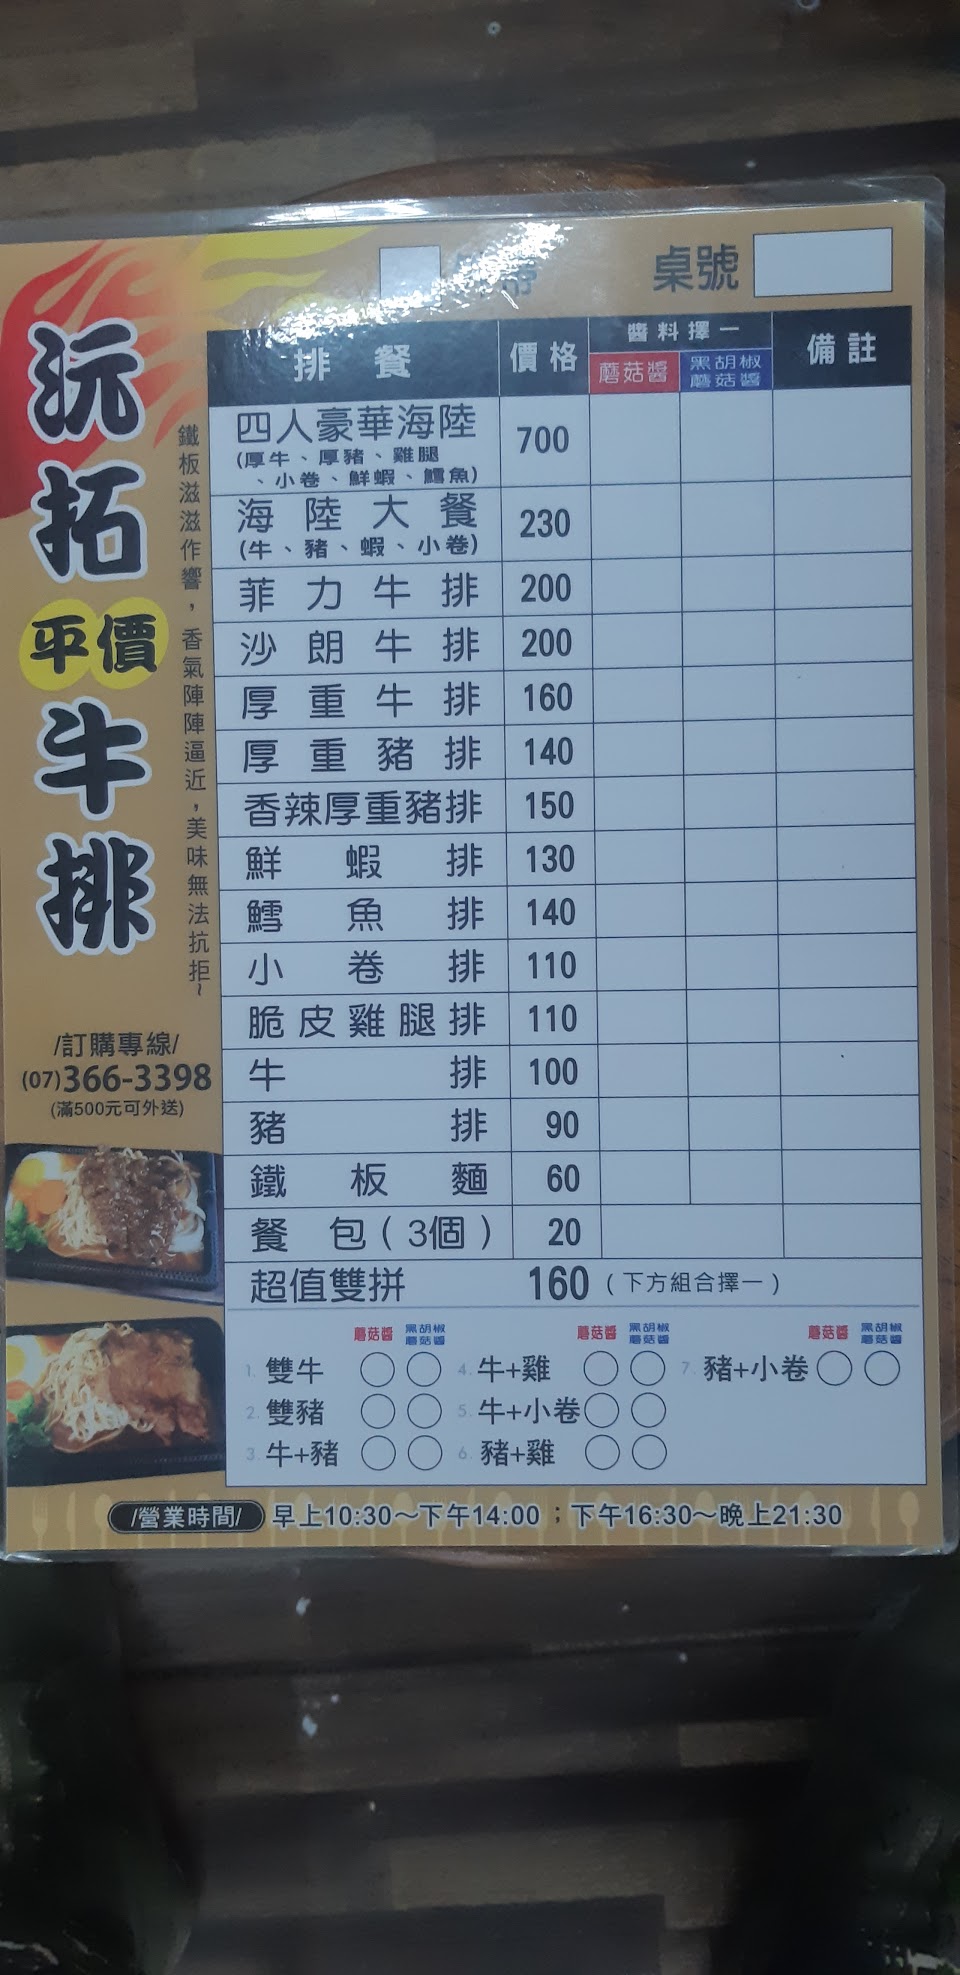 沅拓
平價
牛排
鐵板滋滋作響，香氣陣陣逼近，美味無法抗拒~
/訂購專線/
(07)366-3398
(滿500元可外送)
外帶 桌號
排餐 價格 醬料擇一 備註
蘑菇醬 黑胡椒蘑菇醬
四人豪華海陸 700
(厚牛、厚豬、雞腿
、小卷、鮮蝦、鱈魚)
海陸大餐 230
(牛、豬、蝦、小卷)
菲力牛排 200
沙朗牛排 200
厚重牛排 160
厚重豬排 140
香辣厚重豬排 150
鮮蝦排 130
鱈魚排 140
小卷排 110
脆皮雞腿排 110
牛排 100
豬排 90
鐵板麵 60
餐包(3個) 20
超值雙拼 160 (下方組合擇一)
蘑菇醬 黑胡椒蘑菇醬 蘑菇醬 黑胡椒蘑菇醬 蘑菇醬 黑胡椒蘑菇醬
1. 雙牛 4. 牛+雞 7. 豬+小卷
2. 雙豬 5. 牛+小卷
3. 牛+豬 6. 豬+雞
/營業時間/ 早上10:30～下午14:00；下午16:30～晚上21:30